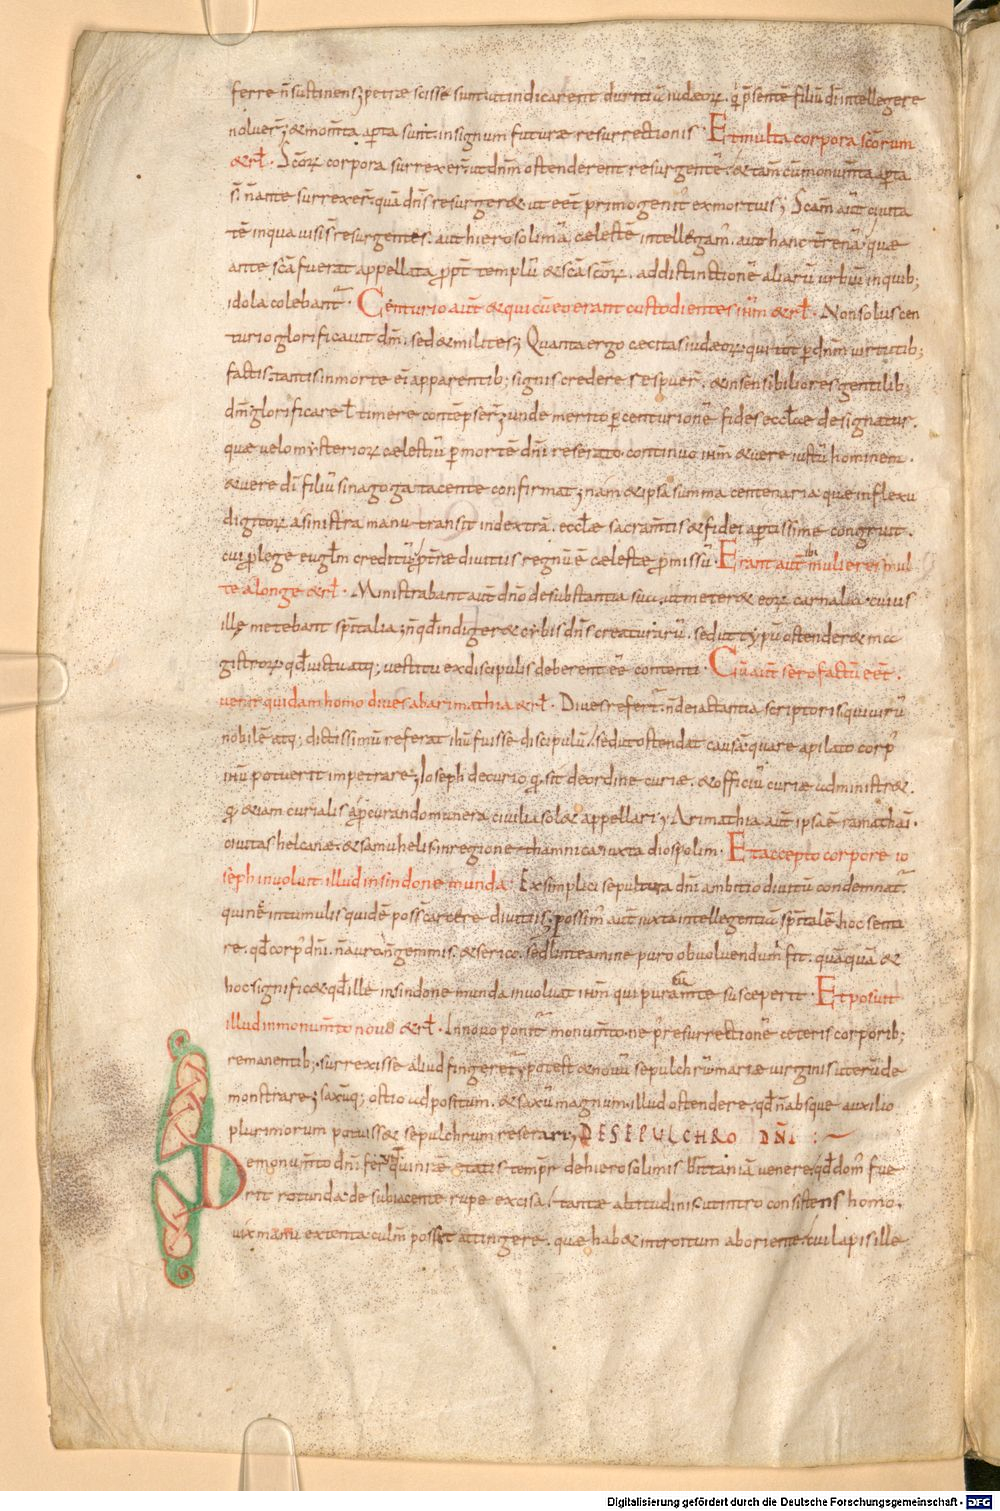 ferre ñ sustinens; petræ scissę sunt ut indicarent duritiū iudæoꝝ. qi p̄sentē filiū dī intellegere
noluer̄; & monum̄ta ap̄ta sunt. insignum futuræ resurrectionis. Et multa corpora scōrum
& rł. Scōꝝ corpora surrexer̄. ut dñm ostenderent resurgentē. & tam̄ cū monum̄ta ap̄ta
s̄t ñ ante surrexer̄. quā dñs resurger& ut eēt primogenit᾽ exmortuis; Scām aūt ciuita
tē inqua uisi s̄ resurgentes. aut hierosolimā cælestē intellegam᾽. aut hanc t̄renā. quæ
ante scā fuerat appellata propt̄ templū & scā scōꝝ. addistinctionē aliarū urbiū inquib;
idola colebant᾽. Centurio aūt & qui cū eo erant custodientes ihm̄ & rł. Non solus cen
turio glorificauit dm̄. sed & milites; Quanta ergo cæcitas iudæoꝝ. qui tot p̄ dñm uirtutib;
factis. tantis in morte ei᾽ apparentib; signis credere respuer̄. & insensibiliores gentilib;
dm̄ glorificare ł timere contēpser̄; unde merito p̄ centurionē fides ecclæ designatur.
quæ uelo mysterioꝝ cælestiū p̄ mortē dñi reserato. continuo ihm̄ & uere iustū hominem.
& uere dī filiū sinagoga tacente confirmat; nam & ipsa summa centenaria quæ inflexu
digitoꝝ a sinistra manu transit in dextrā. ecclæ sacram̄tis & fidei ap̄tissime congruit.
cui p̄ lege euglm̄ creditū. p̄ t̄ræ diuitiis regnū ē cæleste p̄missū. Erant aūt ibi mulieres mul
te a longe & rł. Ministrabant aūt dñō de substantia sua. ut meter& eoꝝ carnalia. cuius
illę metebant sp̄italia; ñ qđ indiger& orbis dñs creaturarū. sed ut typū ostender& ma
gistroꝝ qđ uictu atq; uestitu ex discipulis deberent eē contenti. Cū aūt sero factū eēt.
uenit quidam homo diues ab arimathia & rł. Diues refert᾽. ñ de iactantia scriptoris. qui uirū
nobilē atq; dictissimū referat ihū fuisse discipulū. sed ut ostendat causā. quare apilato corp᾽
ihū potuerit impetrare; Ioseph decurio qi sit de ordine curiæ. & officiū curiæ administr&.
qi & iam curialis ap̄curando munera ciuilia sol& appellari; Arimathia aūt ipsa ē ramathai.
ciuitas helcanæ. & samuhelis in regione thamnica iuxta diospolim. Et accepto corpore io
seph inuoluit illud insindone munda. Ex simplici sepultura dñi ambitio diuitū condemnat᾽.
qui nē in tumulis quidē poss̄ carere diuitiis; possim᾽ aūt iuxta intellegentiā sp̄italē. hoc senti
re. qđ corp᾽ dñi. ñ auro. ñ gemmis. & serico. sed linteamine puro obuoluendum fit. quāquā &
hoc signific& qđ ille in sindone munda inuoluat ihm̄ qui pura eū mente susceperit. Et posuit
illud in monum̄to nouo & rł. In nouo ponit᾽ monum̄to. ne p᾽ resurrectionē ceteris corporib;
remanentib; surrexisse aliud fingeret᾽; potest & nouū sepulchrū mariæ uirginis uterū de
monstrare; saxūq; ostio adpositum. & saxū magnum. illud ostendere. qđ ñ absque auxilio
plurimorum potuiss& sepulchrum reserari; DE SEPULCHRO DÑI :~
De monum̄to dñi fer̄ qui nr̄æ ętatis temp̄r de hierosolimis brittaniā uenere. qđ dom᾽ fue
rit rotunda. de subiacente rupe excisa. tantæ altitudinis. ut intro consistens homo.
uix manu extenta culm̄ possit attingere. quæ hab& introitum aboriente. cui lapis ille